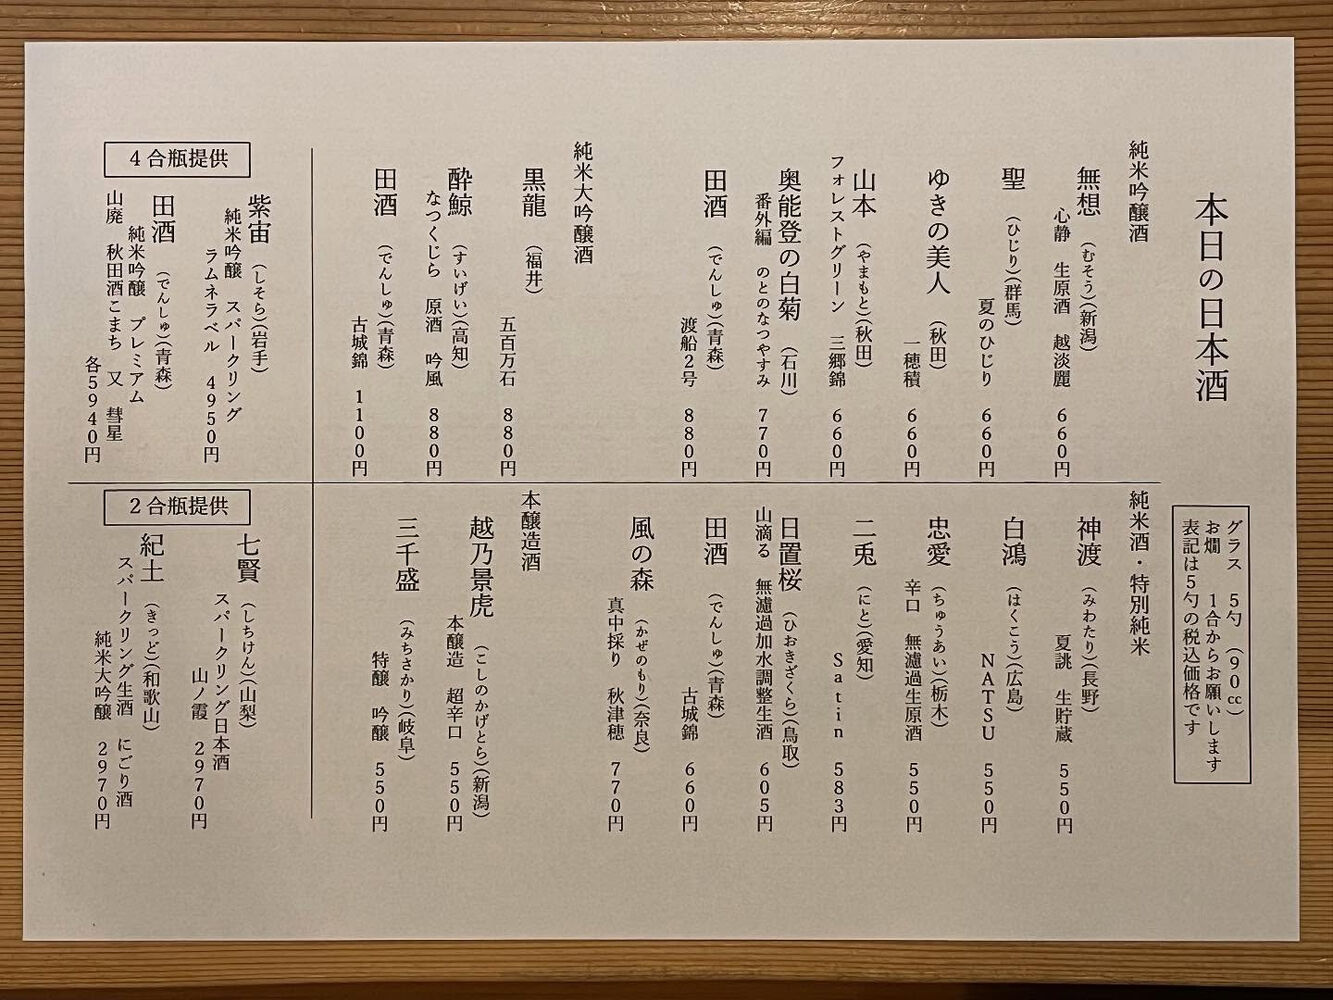 本日の日本酒
グラス 5勺 (90㏄)
お燗 1合からお願いします
表記は5勺の税込価格です
純米吟醸酒
無想 (むそう)(新潟)
心静 生原酒 越淡麗 660円
聖 (ひじり)(群馬)
夏のひじり 660円
ゆきの美人 (秋田)
一穂積 660円
山本 (やまもと)(秋田)
フォレストグリーン 三郷錦 660円
奥能登の白菊 (石川)
番外編 のとのなつやすみ 770円
田酒 (でんしゅ)(青森)
渡船2号 880円
純米大吟醸酒
黒龍 (福井)
五百万石 880円
酔鯨 (すいげい)(高知)
なつくじら 原酒 吟風 880円
田酒 (でんしゅ)(青森)
古城錦 1100円
純米酒・特別純米
神渡 (みわたり)(長野)
夏誂 生貯蔵 550円
白鴻 (はくこう)(広島)
NATSU 550円
忠愛 (ちゅうあい)(栃木)
辛口 無濾過生原酒 550円
二兎 (にと)(愛知)
Satin 583円
日置桜 (ひおきざくら)(鳥取)
山滴る 無濾過加水調整生酒 605円
田酒 (でんしゅ)(青森)
古城錦 660円
風の森 (かぜのもり)(奈良)
真中採り 秋津穂 770円
本醸造酒
越乃景虎 (こしのかげとら)(新潟)
本醸造 超辛口 550円
三千盛 (みちさかり)(岐阜)
特醸 吟醸 550円
4合瓶提供
紫宙 (しそら)(岩手)
純米吟醸 スパークリング
ラムネラベル 4950円
田酒 (でんしゅ)(青森)
純米吟醸 プレミアム
山廃 秋田酒こまち 又 彗星
各5940円
2合瓶提供
七賢 (しちけん)(山梨)
スパークリング日本酒
山ノ霞 2970円
紀土 (きっど)(和歌山)
スパークリング生酒 にごり酒
純米大吟醸 2970円